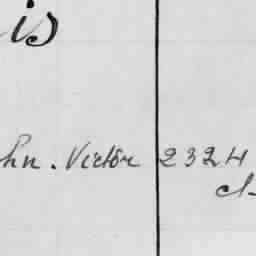 is
hn. Victor 2324
ch